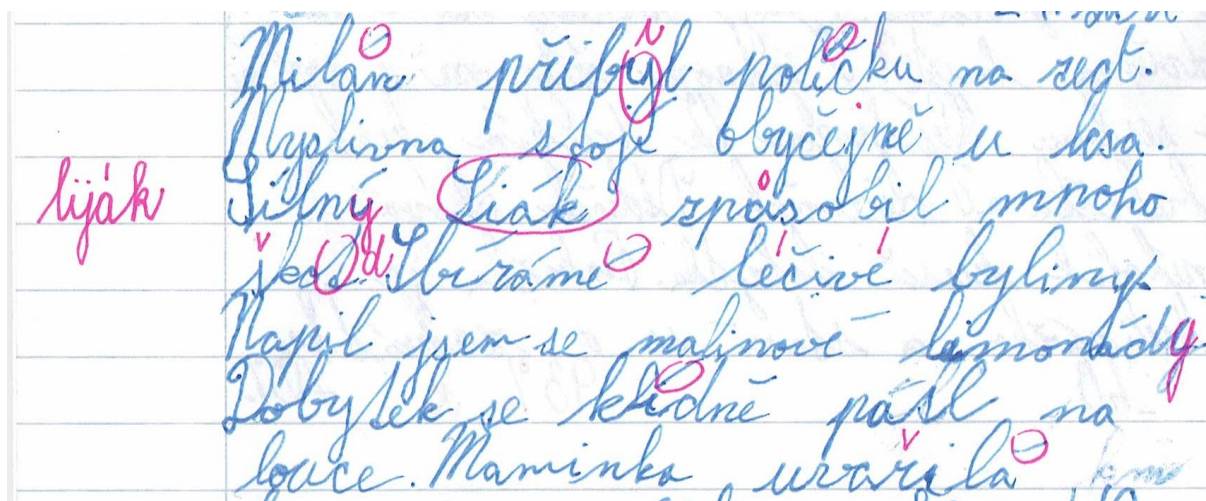 Milán přibyl poličku na zeď.
Myslivna stojí obyčejně u lesa.
lyják Silný Liák zpúsobil mnoho
škod. Sbíráme léčivé byliny.
Napil jsem se malinové limonády.
Dobytek se klidně pásl na
louce. Maminka uvařila